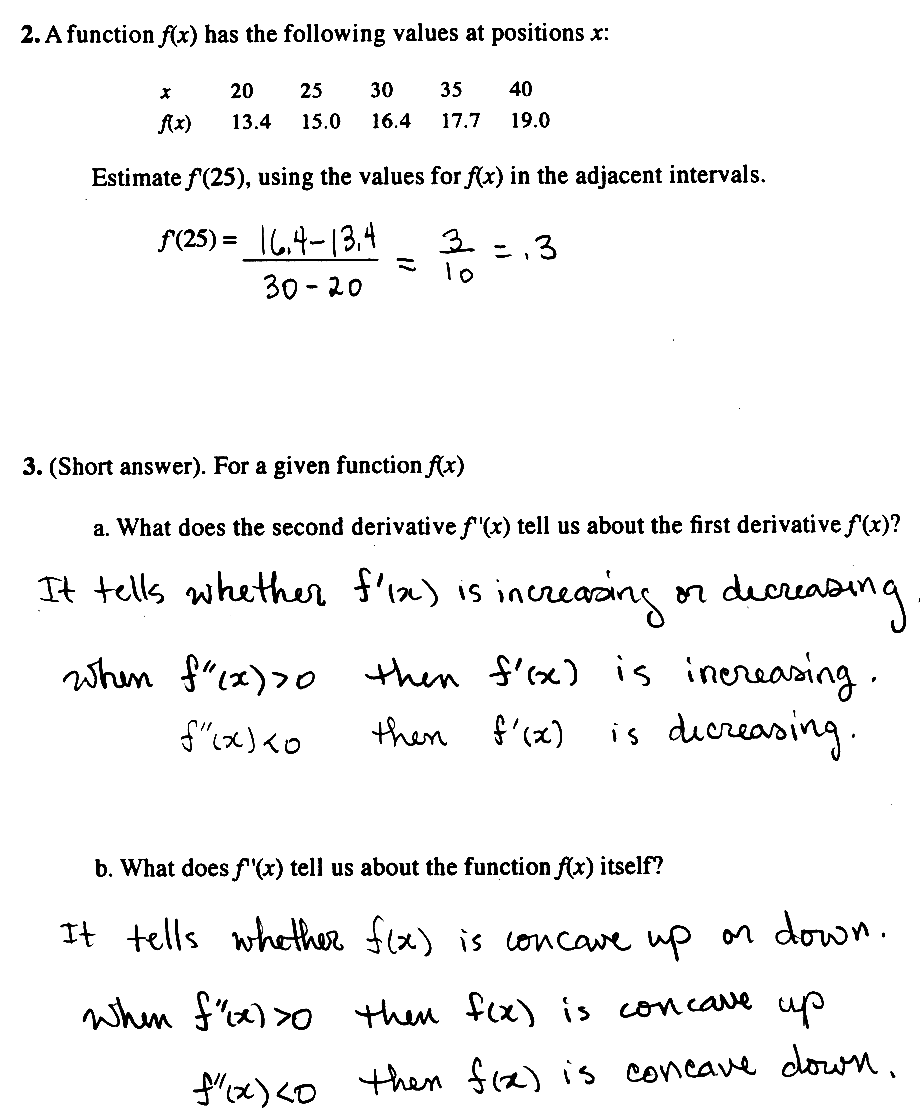 2. A function f(x) has the following values at positions x:
x 20 25 30 35 40
f(x) 13.4 15.0 16.4 17.7 19.0
Estimate f'(25), using the values for f(x) in the adjacent intervals.
f'(25) = (16.4-13.4)/(30-20) = 3/10 = .3
3. (Short answer). For a given function f(x)
a. What does the second derivative f''(x) tell us about the first derivative f'(x)?
It tells whether f'(x) is increasing or decreasing.
When f''(x)>0 then f'(x) is increasing.
f''(x)<0 then f'(x) is decreasing.
b. What does f''(x) tell us about the function f(x) itself?
It tells whether f(x) is concave up or down.
When f''(x)>0 then f(x) is concave up
f''(x)<0 then f(x) is concave down.